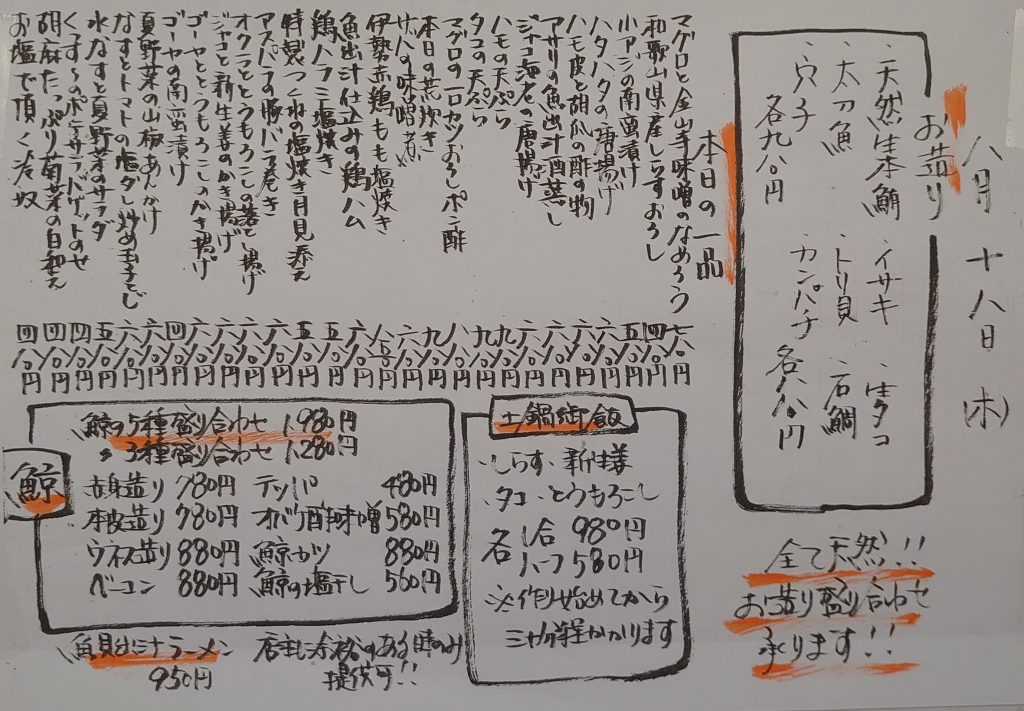 八月十八日(木)
お造り
・天然生本鮪 ・イサキ ・生タコ
・太刀魚 ・トリ貝 ・石鯛
・穴子 ・カンパチ 各八〇〇円
各九八〇円
全て天然!!
お造り盛り合わせ
承ります!!
本日の一品
マグロと金山寺味噌のなめろう 七八〇円
和歌山県産しらすおろし 四八〇円
小アジの南蛮漬け 五八〇円
ハタハタの唐揚げ 六八〇円
ハモ皮と胡瓜の酢の物 六八〇円
アサリの魚出汁酒蒸し
ジャコ海老の唐揚げ
ハモの天ぷら
タコの天ぷら
マグロの一口カツおろしポン酢
本日の荒炊き
サバの味噌煮
伊勢赤鶏もも塩焼き
魚出汁仕込みの鶏ハム
鶏ハラミ塩焼き
特製つくねの塩焼き月見添え
アスパラの豚バラ巻き
オクラととうもろこしの落とし揚げ
ジャコと新生姜のかき揚げ
ゴーヤととうもろこしのかき揚げ
ゴーヤの南蛮漬け
夏野菜の山椒あんかけ
なすとトマトの塩ダレ炒め玉子とじ
水なすと夏野菜のサラダ
くんさんのポテサラ バゲットのせ
胡麻たっぷり菊菜の白和え
お塩で頂く冷奴 四八〇円
鯨
鯨の5種盛り合わせ 1,980円
〃 3種盛り合わせ 1,280円
赤身造り 780円 テッパ 480円
本皮造り 780円 オバケ酢味噌 580円
ウネス造り 880円 鯨カツ 880円
ベーコン 880円 鯨の塩干し 560円
魚貝出汁ラーメン 950円
店主に余裕のある時のみ
提供可!!
土鍋御飯
・しらす ・新生姜
・タコ ・とうもろこし
各 1合 980円
ハーフ 580円
※作り始めてから
三十分程かかります